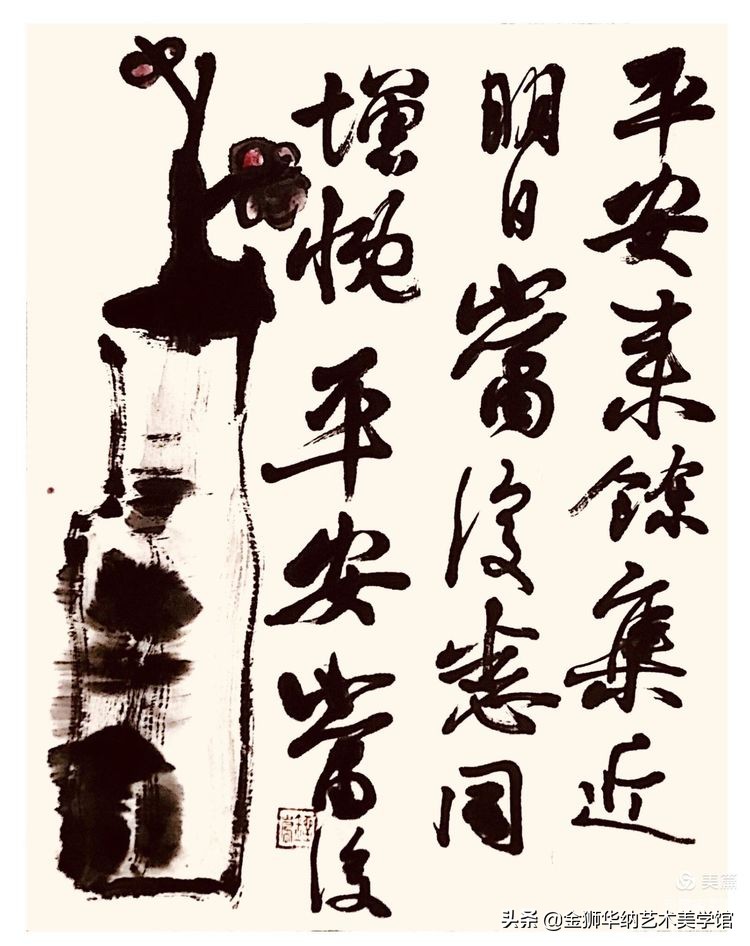 平安来餘集近
明日當復悉同
增慨平安當復
美篇
头条 @金狮华纳艺术美学馆